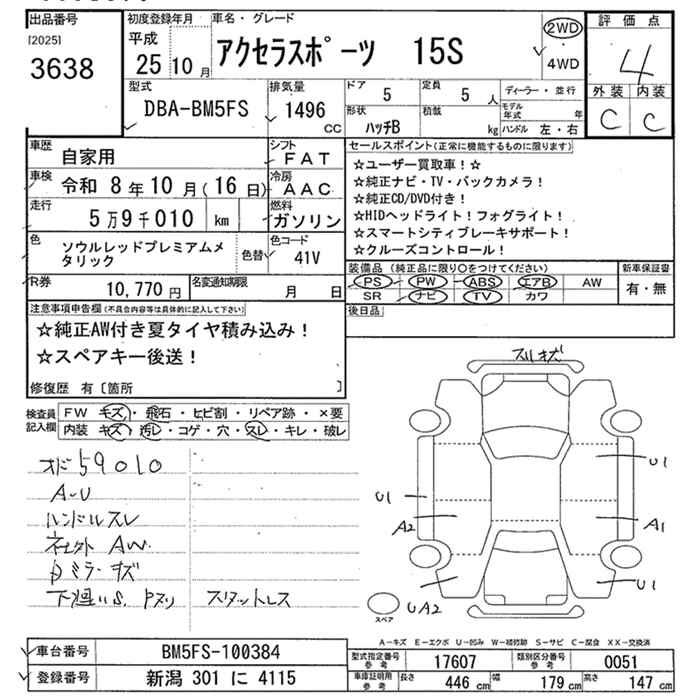 出品番号
[2025]
3638
初度登録年月
平成
25 10 月
車名・グレード
アクセラスポーツ 15S
2WD
4WD
評価点
4
外装 内装
C C
型式
DBA-BM5FS
排気量
1496 CC
ドア
5
定員
5 人
形状
ハッチB
積載
kg
ディーラー・並行
モデル年式 年
ハンドル 左・右
車歴
自家用
シフト
FAT
車検
令和 8年10月(16日)
冷房
AAC
走行
5万9千010 km
燃料
ガソリン
色
ソウルレッドプレミアムメタリック
色替
色コード
41V
R券
10,770 円
名変通知期限
月 日
セールスポイント(正常に機能するものに限ります)
☆ユーザー買取車！☆
☆純正ナビ・TV・バックカメラ！
☆純正CD/DVD付き！
☆HIDヘッドライト！フォグライト！
☆スマートシティブレーキサポート！
☆クルーズコントロール！
装備品（純正品に限り○をつけてください）
PS PW ABS エアB AW
SR ナビ TV カワ
新車保証書
有・無
後日品
注意事項申告欄(不具合内容等は具体的に記入して下さい)
☆純正AW付き夏タイヤ積み込み！
☆スペアキー後送！
修復歴 有〔箇所 〕
検査員記入欄
FW キズ・飛石・ヒビ割・リペア跡・×要
内装 キズ・汚レ・コゲ・穴・スレ・キレ・破レ
オド 59010
A-U
ハンドルスレ
社外 AW
キズ
スタットレス
スリキズ
U1
U1
A2
A1
U1
UA2
スペア
A－キズ E－エクボ U－凹み W－補修跡 S－サビ C－腐食 XX－交換済
車台番号
BM5FS-100384
登録番号
新潟 301 に 4115
型式指定番号 参考
17607
類別区分番号 参考
0051
車庫証明用 参考
長さ 446 cm
幅 179 cm
高さ 147 cm